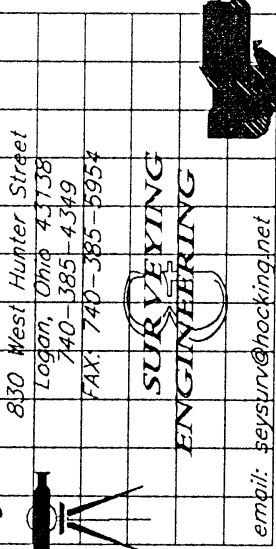 830 West Hunter Street
Logan, Ohio 43138
740-385-4349
FAX: 740-385-5954
SURVEYING
ENGINEERING
email: seysurv@hocking.net